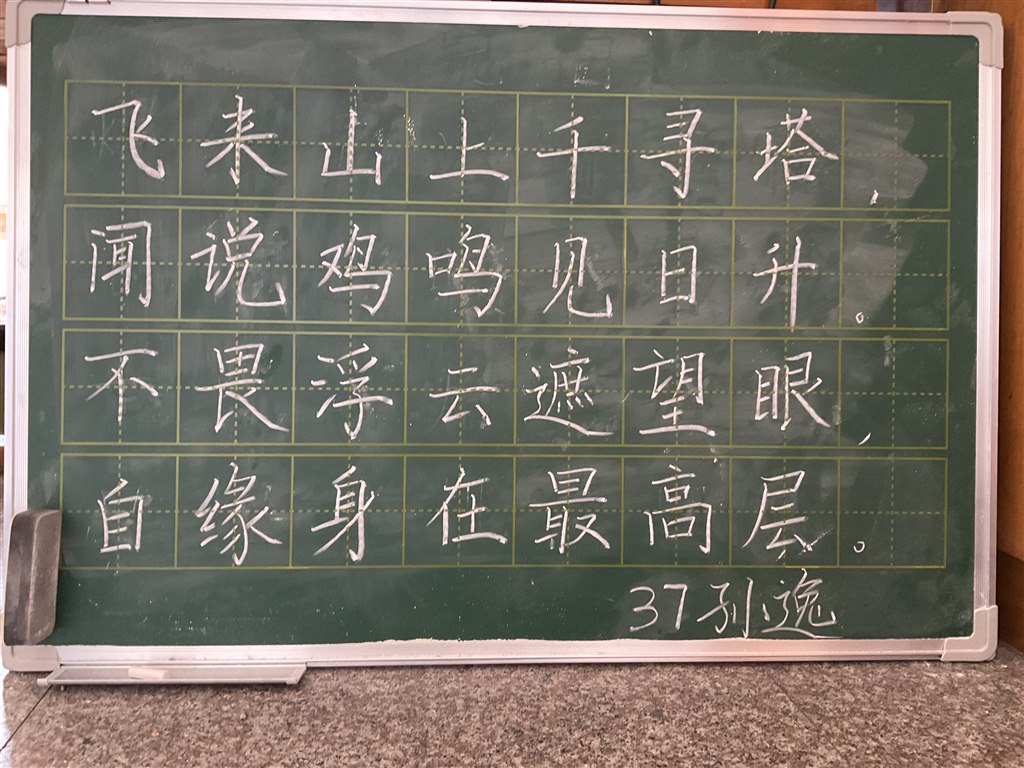 飞来山上千寻塔，
闻说鸡鸣见日升。
不畏浮云遮望眼，
自缘身在最高层。
37孙逸